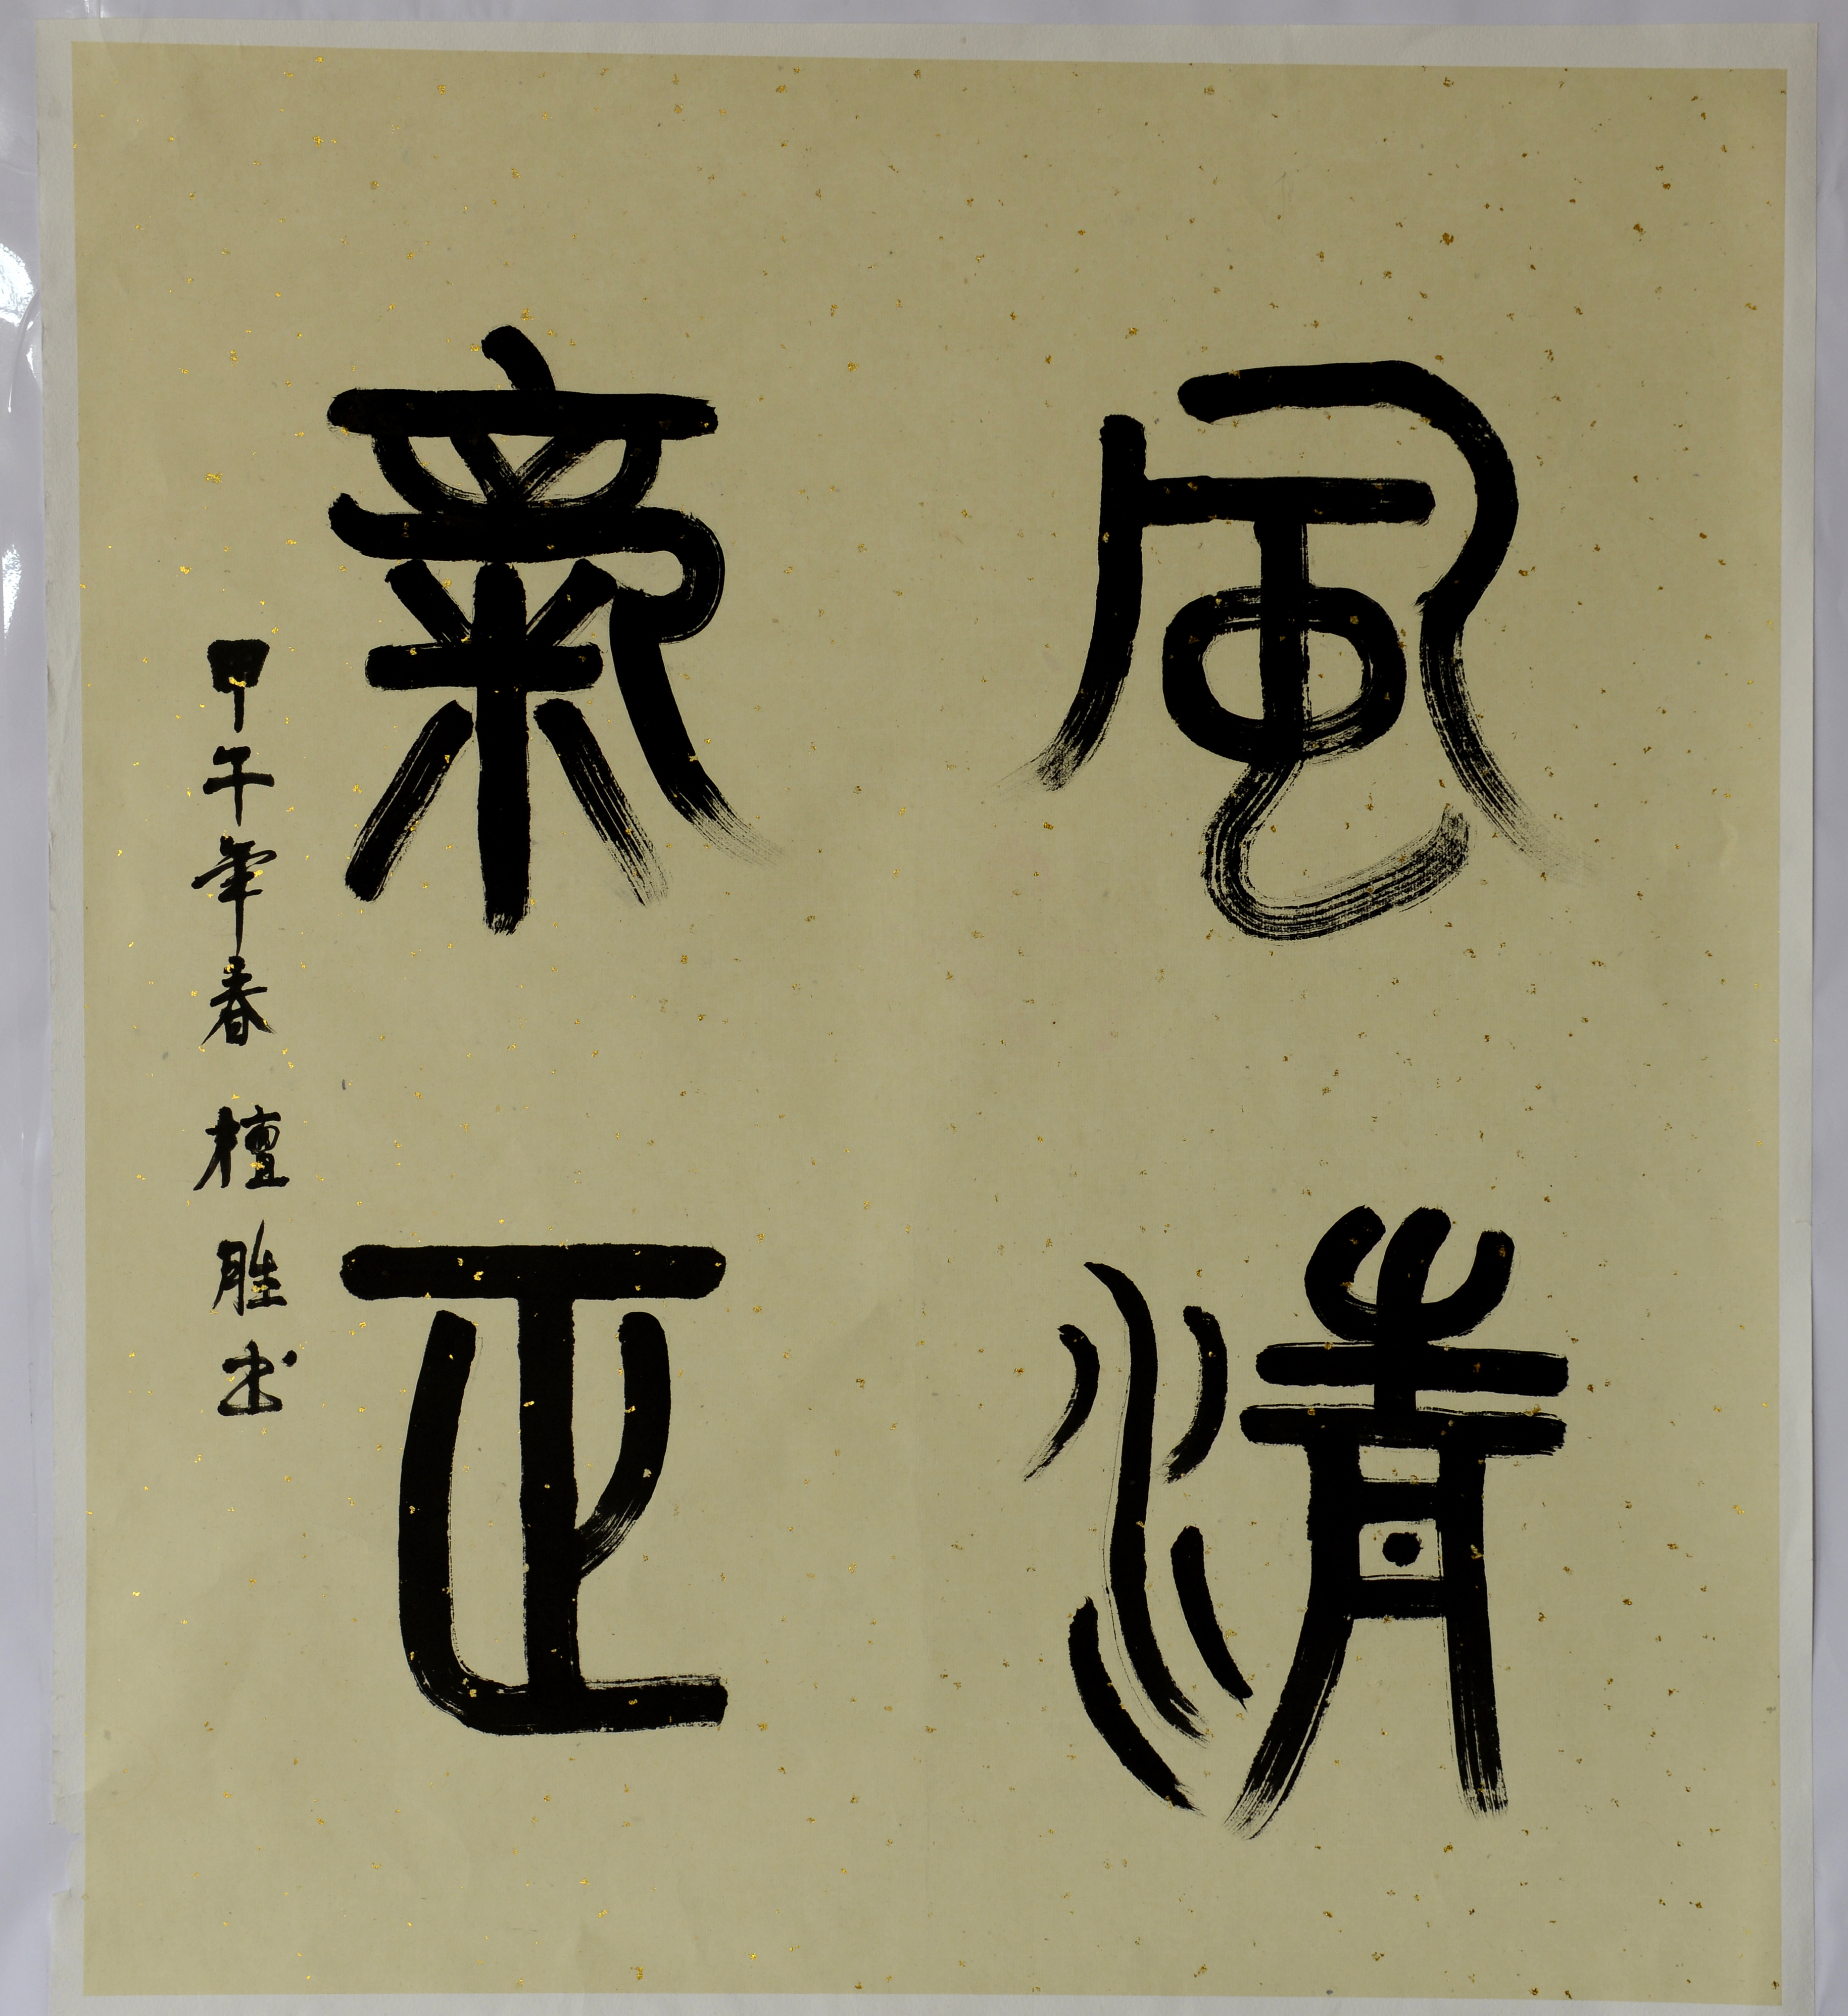 風清
氣正
甲午年春 檀胜书